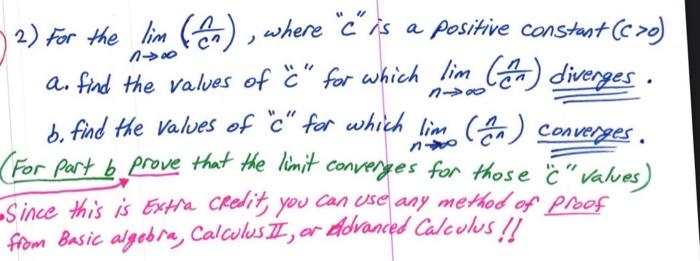 2) For the lim n→∞ (n/cⁿ), where "c" is a positive constant (c>0)
a. find the values of "c" for which lim n→∞ (n/cⁿ) diverges.
b. find the values of "c" for which lim n→∞ (n/cⁿ) converges.
(For part b prove that the limit converges for those "c" values)
• Since this is Extra Credit, you can use any method of proof
from Basic algebra, Calculus II, or Advanced Calculus !!